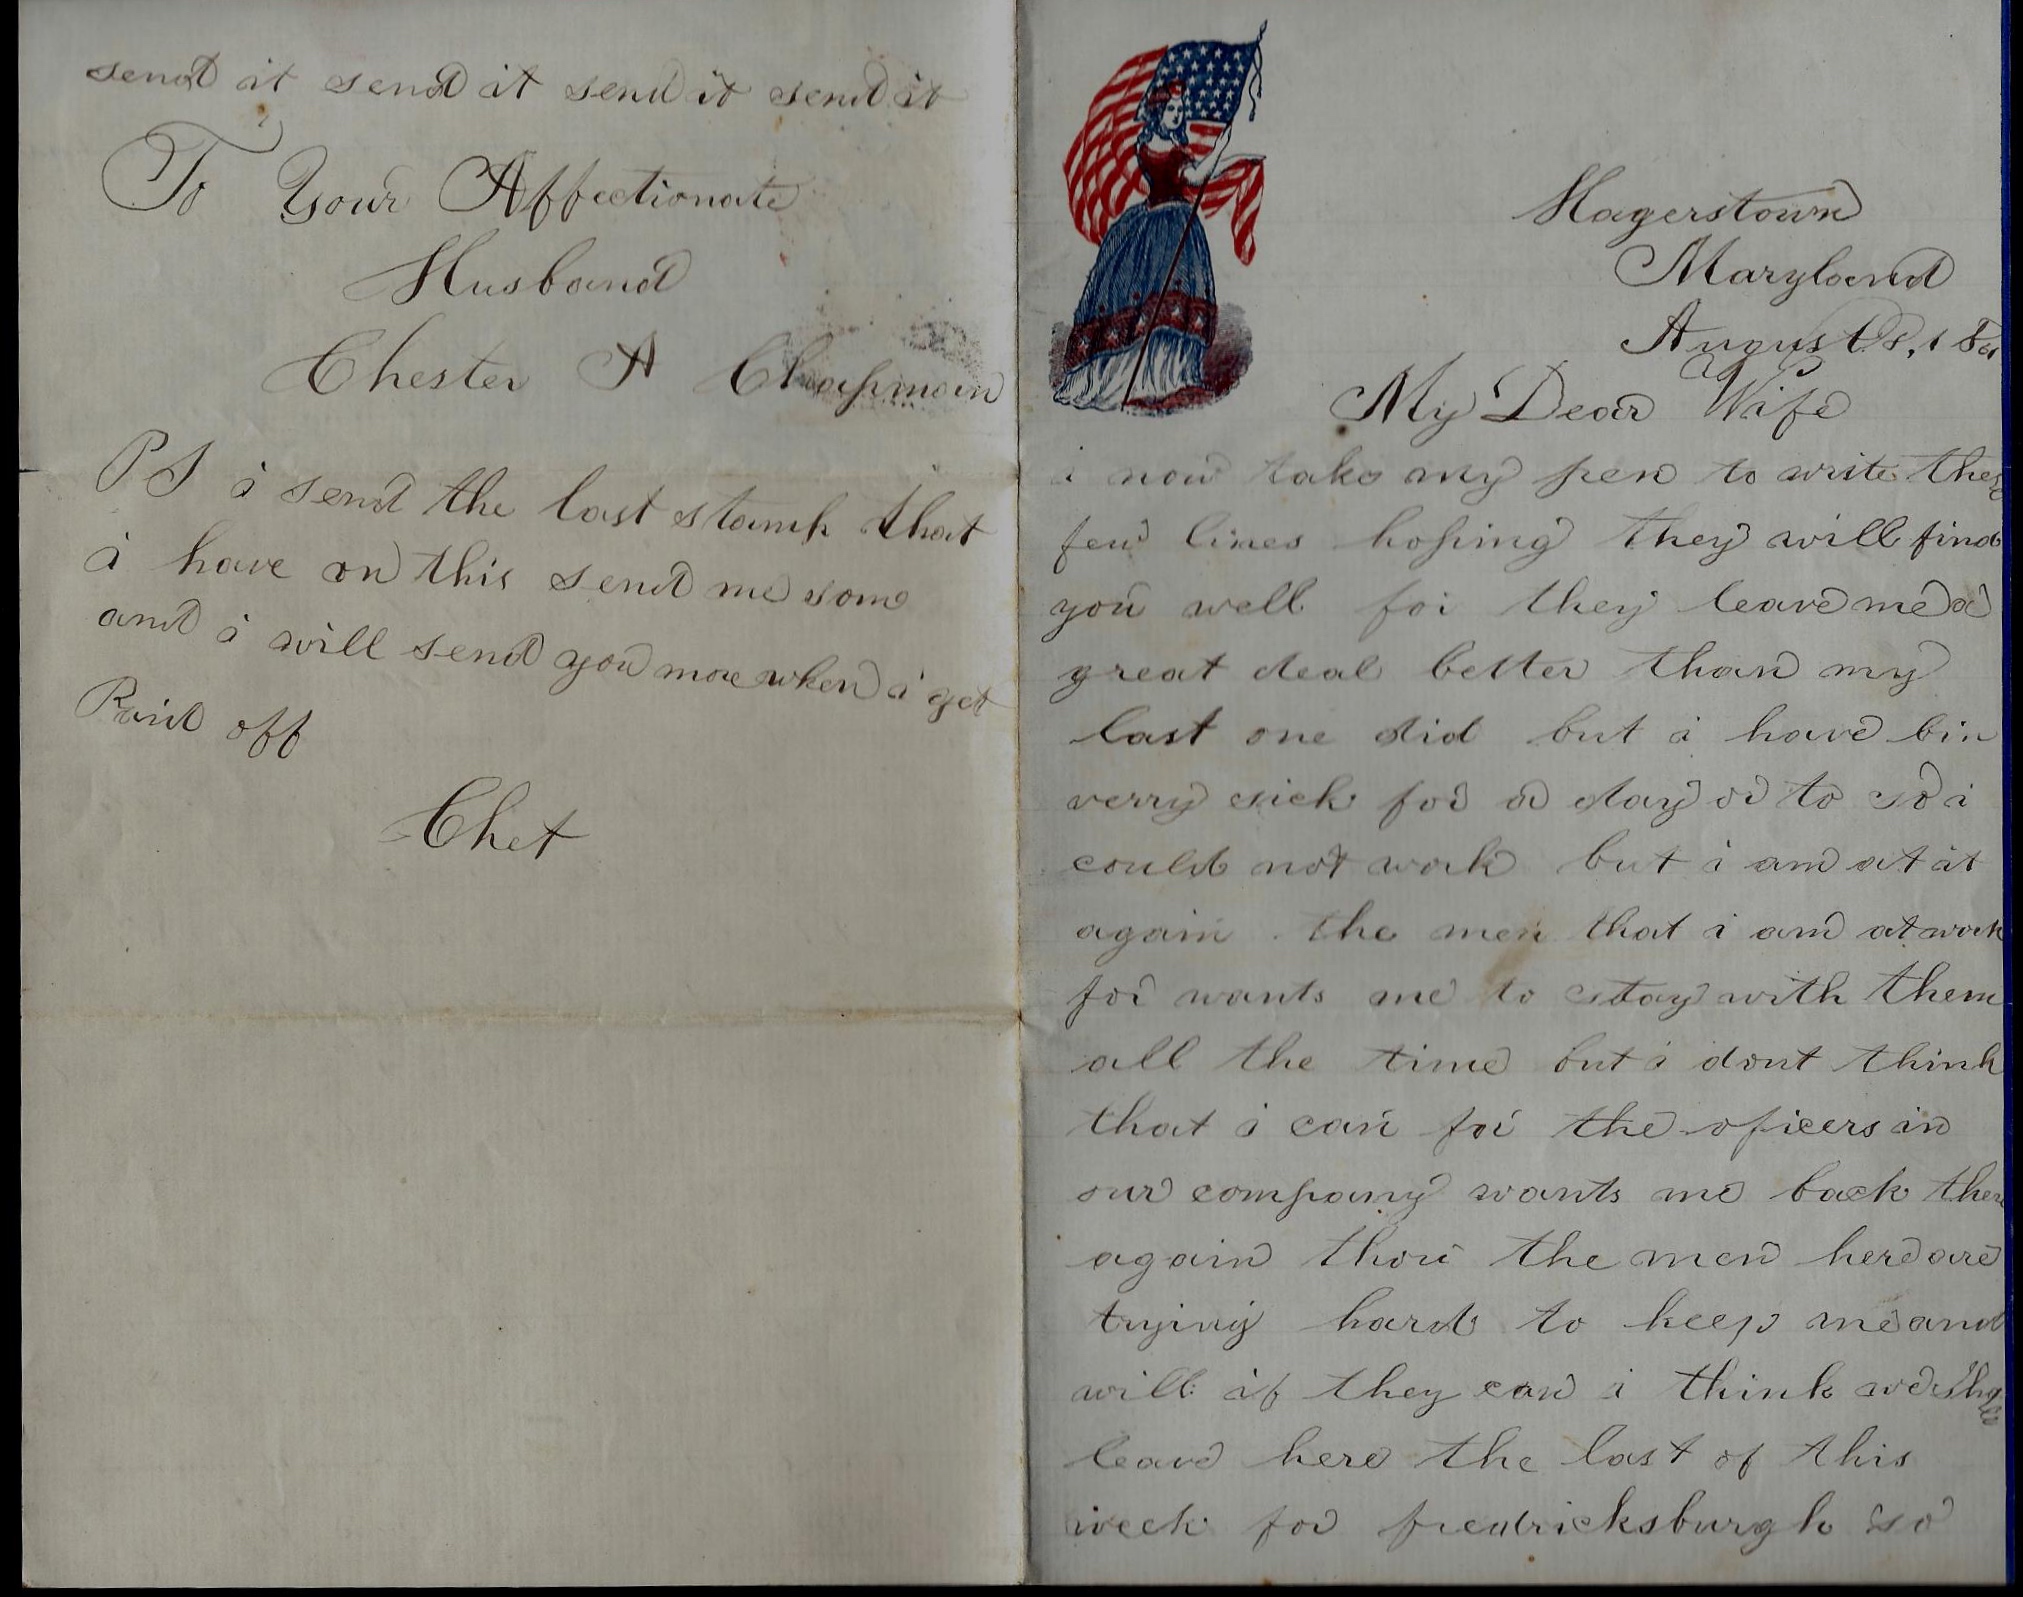 send it send it send it send it
To Your Affectionate
Husband
Chester A Chapman
PS i send the last stamp that
i have on this send me some
and i will send you more when i get
Paid off
Chet
Hagerstown
Maryland
August
My Dear Wife
i now take my pen to write these
few lines hoping they will find
you well for they leave me a
great deal better than my
last one did but i have bin
verry sick for a day or to so i
could not work but i am at it
again the men that i am at work
for wants me to stay with them
all the time but i dont think
that i can for the oficers in
our company wants me back there
again thou the men here are
trying hard to keep me and
will if they can i think we shall
leave here the last of this
week for fredricksburgh so